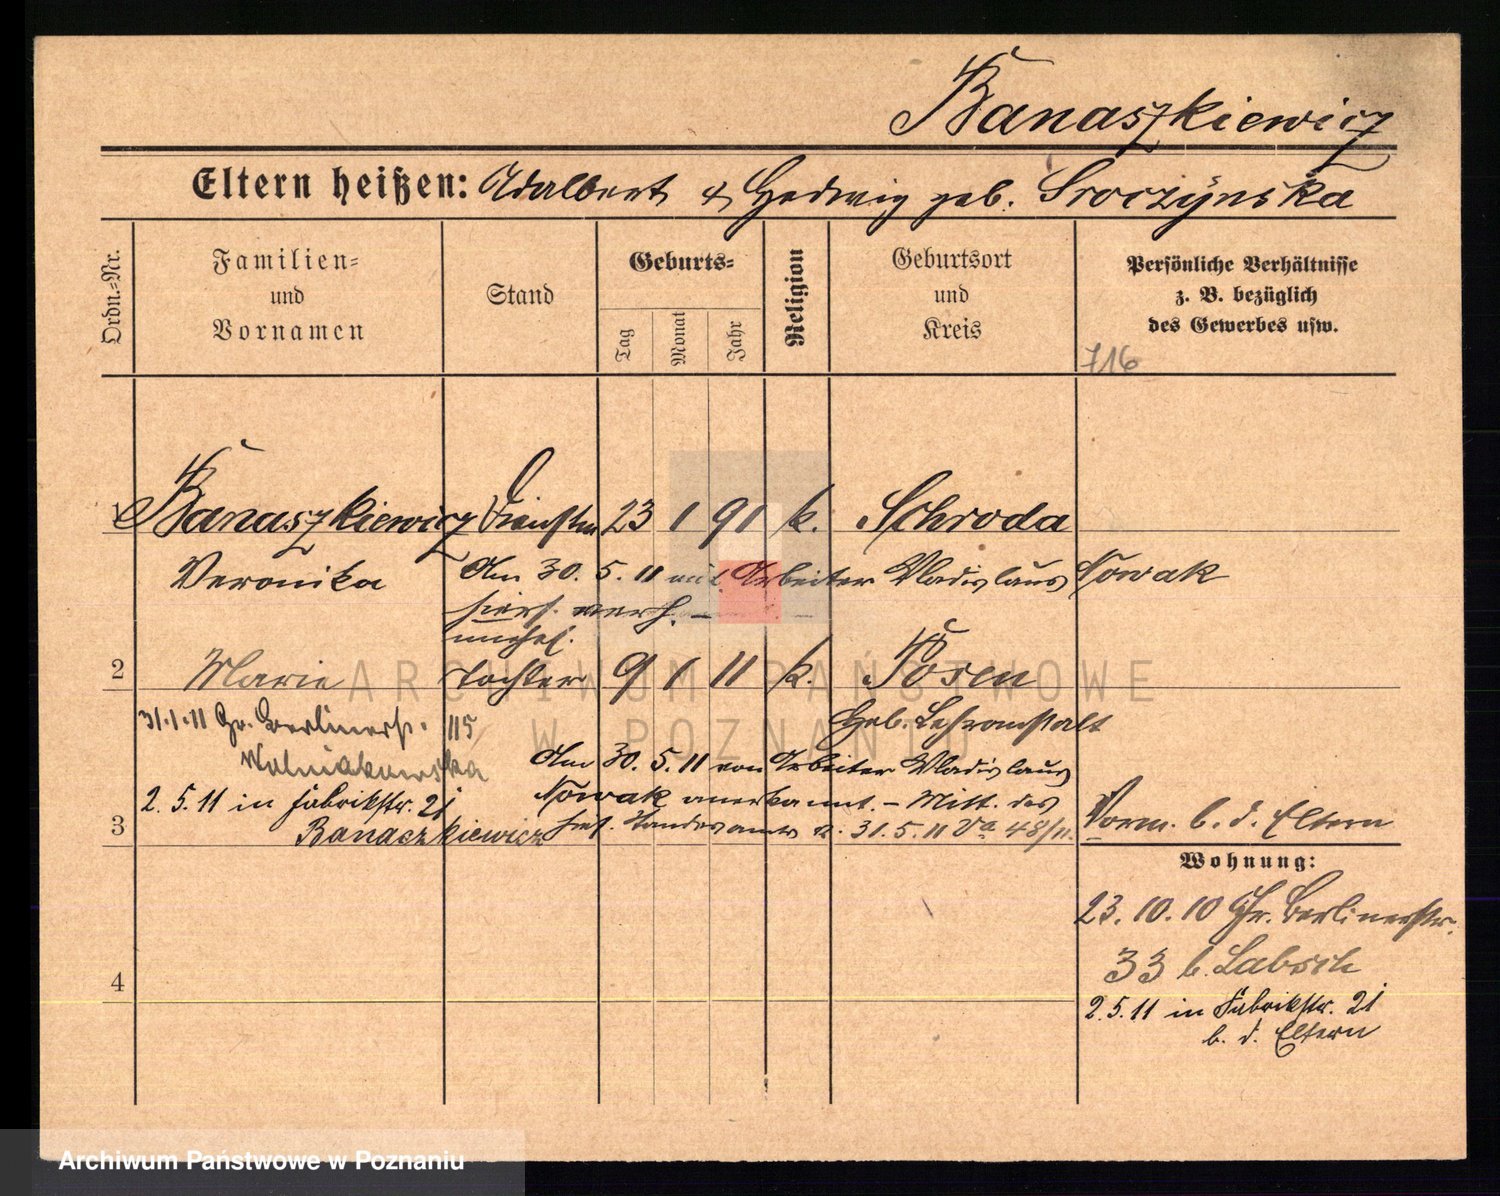 Banaszkiewicz
Eltern heißen: Adalbert & Hedwig geb. Sroczyńska
Ordn.=Nr.
Familien=
und
Vornamen
Stand
Geburts=
Tag
Monat
Jahr
Religion
Geburtsort
und
Kreis
Persönliche Verhältnisse
z. B. bezüglich
des Gewerbes usw.
716
1 Banaszkiewicz 23 1 91 k. Schroda
Veronika
Am 30. 5. 11 mit Arbeiter Vladislaus Nowak
hiers. verh. —
unehel.
2 Marie Tochter 9 1 11 k. Posen
31.1.11 Gr. Berlinerstr. 115
Geb. Lehranstalt
Wolniakowska
Am 30. 5. 11 von Arbeiter Vladislaus
2.5.11 in Fabrikstr. 21
Nowak anerkannt. – Mitt. des
3 Banaszkiewicz
hies. Standesamts v. 31.5.11 Va 48/11.
Vorm. b. d. Eltern
Wohnung:
23.10.10 Gr. Berlinerstr.
33 b. Labsch
4
2.5.11 in Fabrikstr. 21
b. d. Eltern
ARCHIWUM PAŃSTWOWE
W POZNANIU
Archiwum Państwowe w Poznaniu